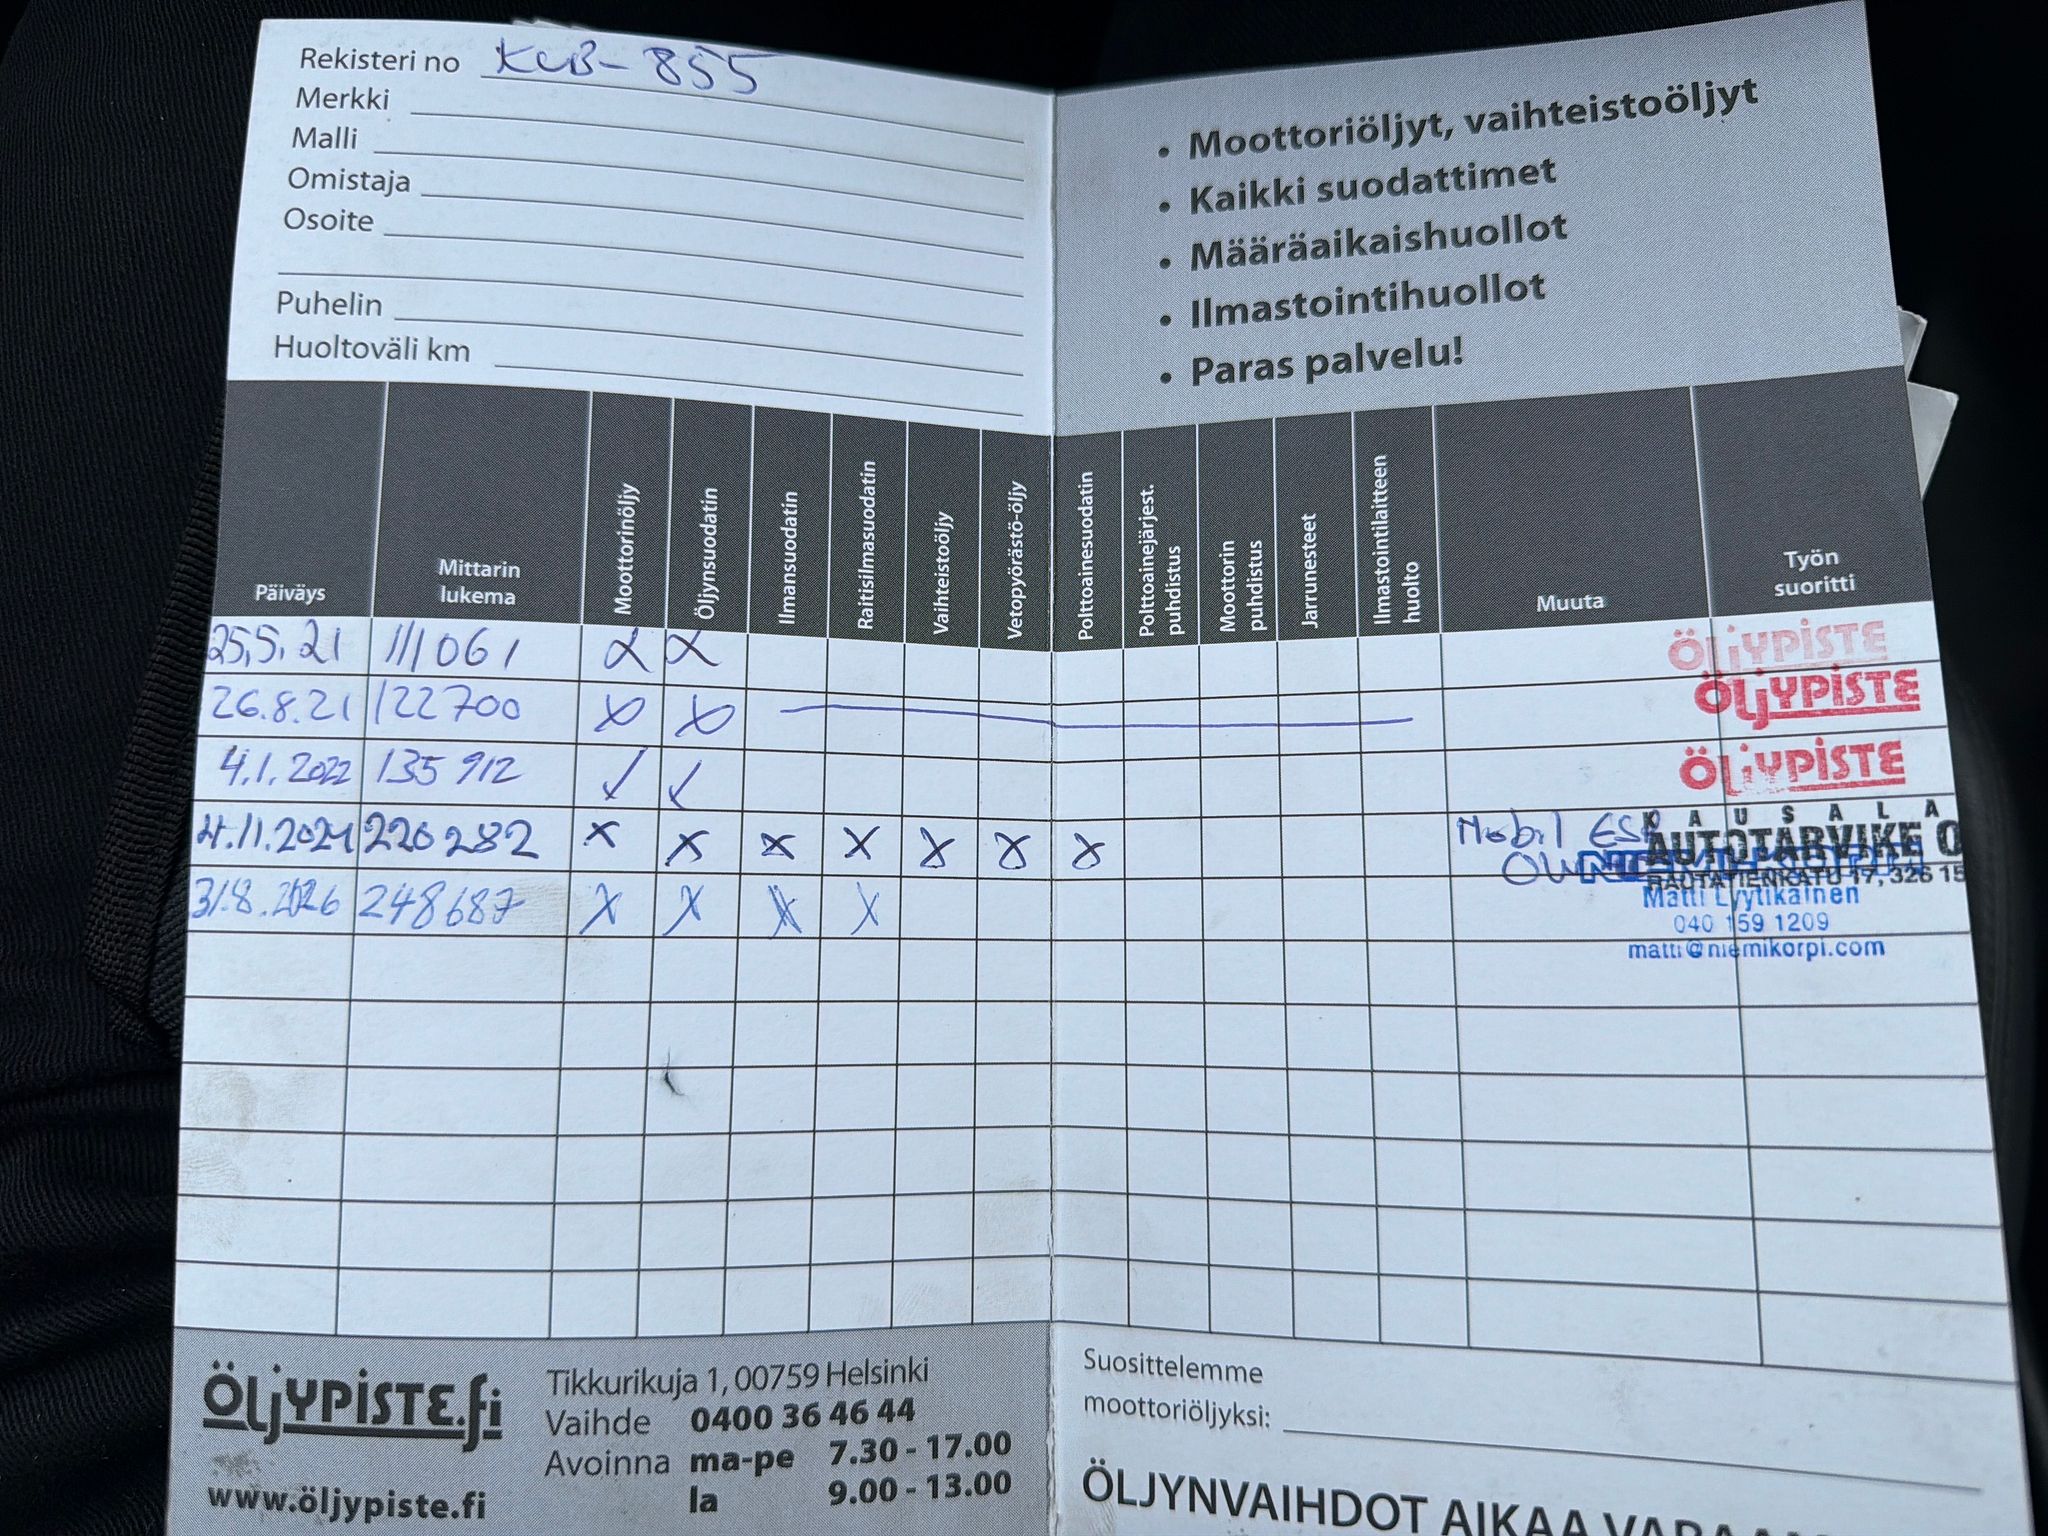 Rekisteri no KCB-855
Merkki
Malli
Omistaja
Osoite
Puhelin
Huoltoväli km
• Moottoriöljyt, vaihteistoöljyt
• Kaikki suodattimet
• Määräaikaishuollot
• Ilmastointihuollot
• Paras palvelu!
Päiväys Mittarin lukema Moottorinöljy Öljynsuodatin Ilmansuodatin Raitisilmasuodatin Vaihteistoöljy Vetopyörästö-öljy Polttoainesuodatin Polttoainejärjest. puhdistus Moottorin puhdistus Jarrunesteet Ilmastointilaitteen huolto Muuta Työn suoritti
25.5.21 111061 x x ÖLJYPISTE
26.8.21 122700 x x ÖLJYPISTE
4.1.2022 135912 ✓ ✓ ÖLJYPISTE
4.11.2024 220282 x x x x x x x Mobil ESP
KAUSALA
AUTOTARVIKE O
RAUTATIENKATU 17, 326 15
31.8.2026 248687 x x x x
Matti Lyytikäinen
040 159 1209
matti@niemikorpi.com
ÖLJYPISTE.fi
www.öljypiste.fi
Tikkurikuja 1, 00759 Helsinki
Vaihde 0400 36 46 44
Avoinna ma-pe 7.30 - 17.00
la 9.00 - 13.00
Suosittelemme
moottoriöljyksi:
ÖLJYNVAIHDOT AIKAA VARAA